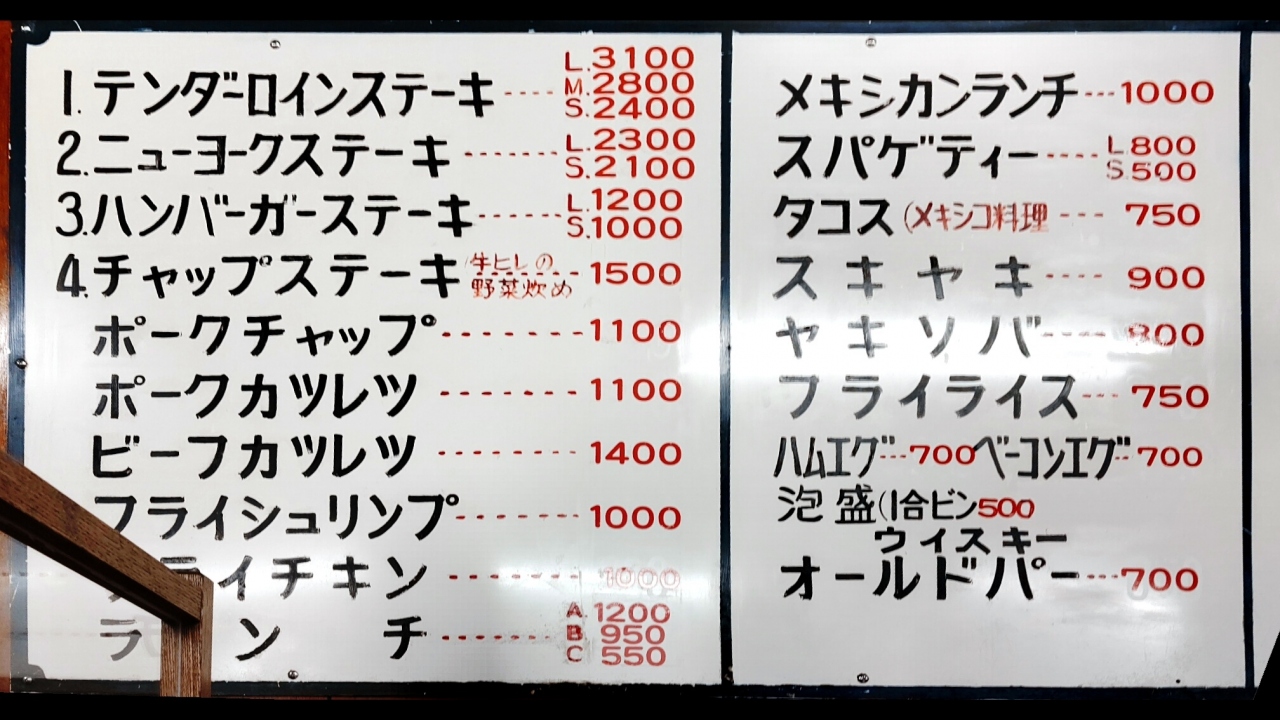 1.テンダーロインステーキ----L.3100
M.2800
S.2400
2.ニューヨークステーキ------L.2300
S.2100
3.ハンバーガーステーキ------L.1200
S.1000
4.チャップステーキ 牛ヒレの 野菜炊め 1500
ポークチャップ-------1100
ポークカツレツ-------1100
ビーフカツレツ-------1400
フライシュリンプ------1000
ライチキン------1000
ランチ------A.1200
B 950
C 550
メキシカンランチ---1000
スパゲティー----L.800
S.500
タコス(メキシコ料理---750
スキヤキ----900
ヤキソバ----800
フライライス---750
ハムエグ---700ベーコンエグ--700
泡盛(1合ビン500
ウィスキー
オールドパー---700